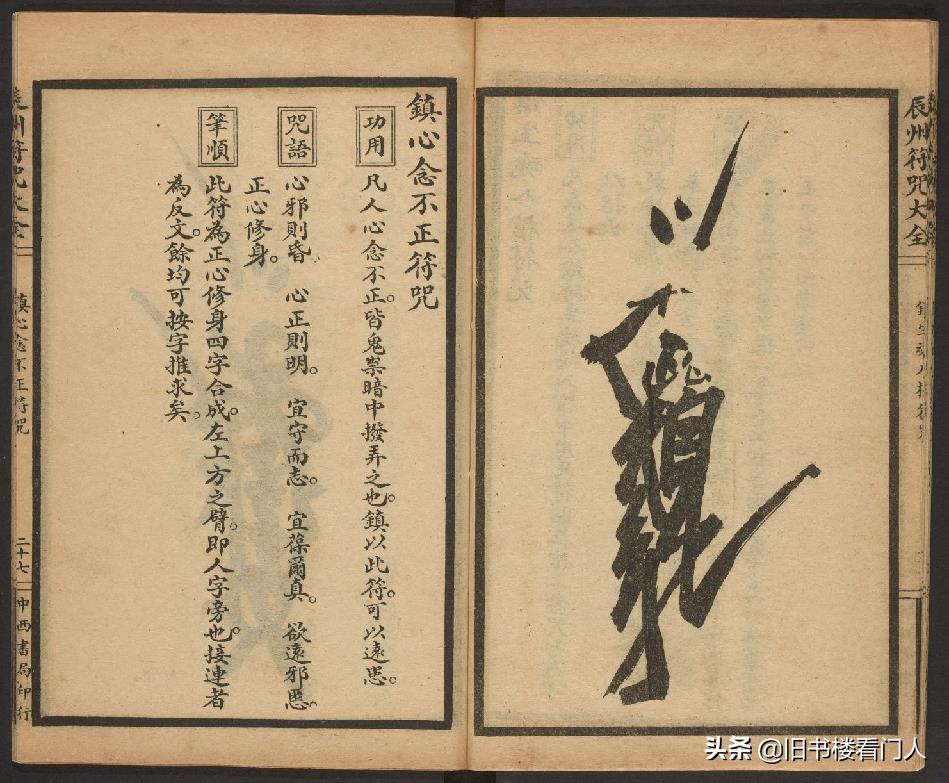 辰州符咒大全
鎮心念不正符咒
功用
凡人心念不正。皆鬼祟暗中撥弄之也。鎮以此符。可以遠惡。
咒語
心邪則昏 心正則明。 宜守而志。 宜葆爾真。 欲遠邪惡。
正心修身。
筆順
此符為正心修身四字合成。左上方之臂。即人字旁也。接連者
為反文。餘均可按字推求矣。
辰州符咒大全
鎮心念不正符咒
二十七
中西書局印行
头条 @旧书楼看门人